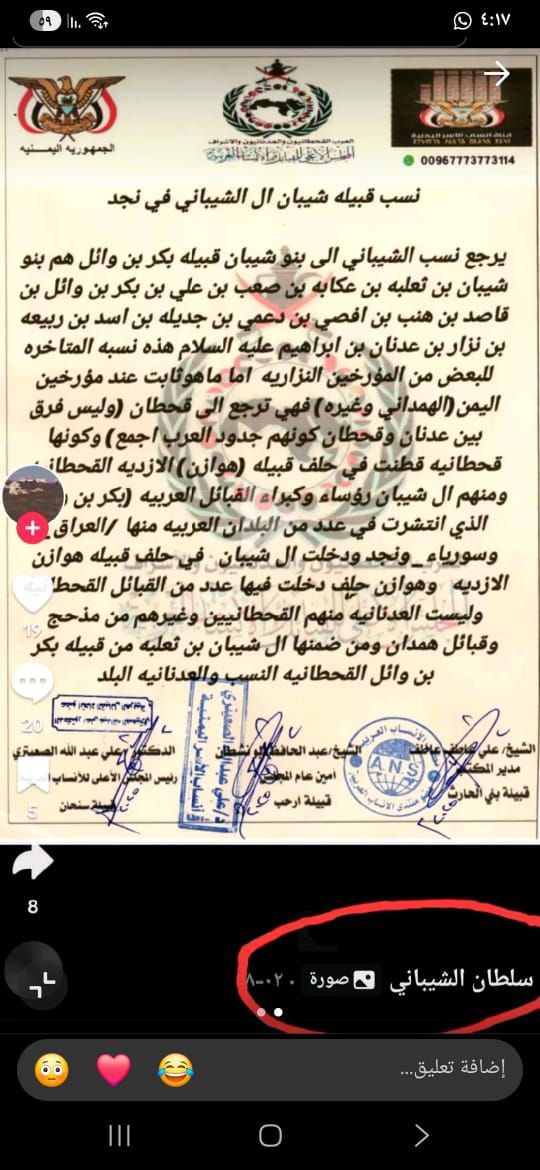 ٤:١٧
٥٩
الجمهوريه اليمنيه
العرب القحطانيون والعدنانيون والاشراف
00967773773114
نسب قبيله شيبان ال الشيباني في نجد
يرجع نسب الشيباني الى بنو شيبان قبيله بكر بن وائل هم بنو
شيبان بن ثعلبه بن عكابه بن صعب بن علي بن بكر بن وائل بن
قاصد بن هنب بن افصي بن دعمي بن جديله بن اسد بن ربيعه
بن نزار بن عدنان بن ابراهيم عليه السلام هذه نسبه المتاخره
للبعض من المؤرخين النزاريه اما ماهوثابت عند مؤرخين
اليمن(الهمداني وغيره) فهي ترجع الى قحطان (وليس فرق
بين عدنان وقحطان كونهم جدود العرب اجمع) وكونها
قحطانيه قطنت في حلف قبيله (هوازن) الازديه القحطانيه
ومنهم ال شيبان رؤساء وكبراء القبائل العربيه (بكر بن
الذي انتشرت في عدد من البلدان العربيه منها /العراق
وسورياء _ونجد ودخلت ال شيبان في حلف قبيله هوازن
الازديه وهوازن حلف دخلت فيها عدد من القبائل القحطانيه
وليست العدنانيه منهم القحطانيين وغيرهم من مذحج
وقبائل همدان ومن ضمنها ال شيبان بن ثعلبه من قبيله بكر
بن وائل القحطانيه النسب والعدنانيه البلد
الشيخ/ علي عاطف عاطف
مدير المكتب
قبيلة بني الحارث
الشيخ/عبد الحافظ ابو نشطان
أمين عام المجلس
قبيلة ارحب
الدكتور/علي عبد الله الصعيتري
رئيس المجلس الأعلى للأنساب العربية
قبيلة سنحان
A.N.S
19
20
5
8
سلطان الشيباني
صورة
إضافة تعليق...